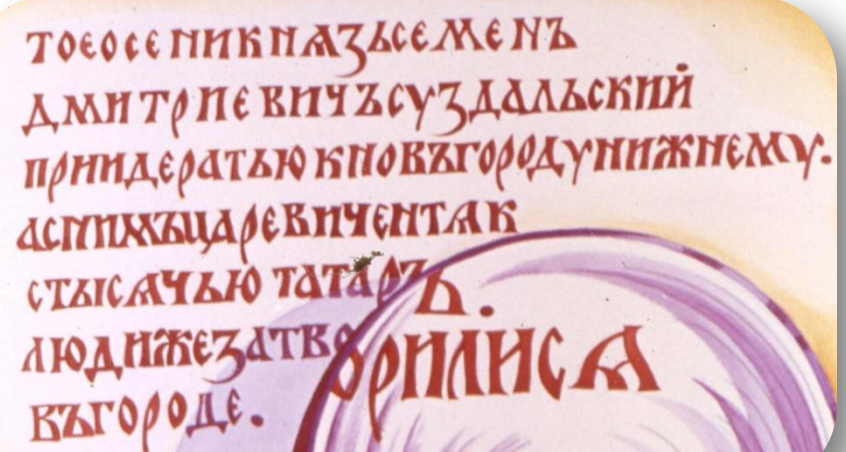 ТОЕОСЕНИКНѦЗЬСЕМЕНЪ
ДМИТРИЕВИЧЪСУЗДАЛЬСКИЙ
ПРИИДЕРАТЬЮКНОВЪГОРОДУНИЖНЕМУ.
АСНИМЪЦАРЕВИЧЕНТѦК
СТЫСѦЧЬЮ ТАТАРЪ.
ЛЮДИЖЕЗАТВОРИЛИСѦ
ВЪГОРОДЕ.